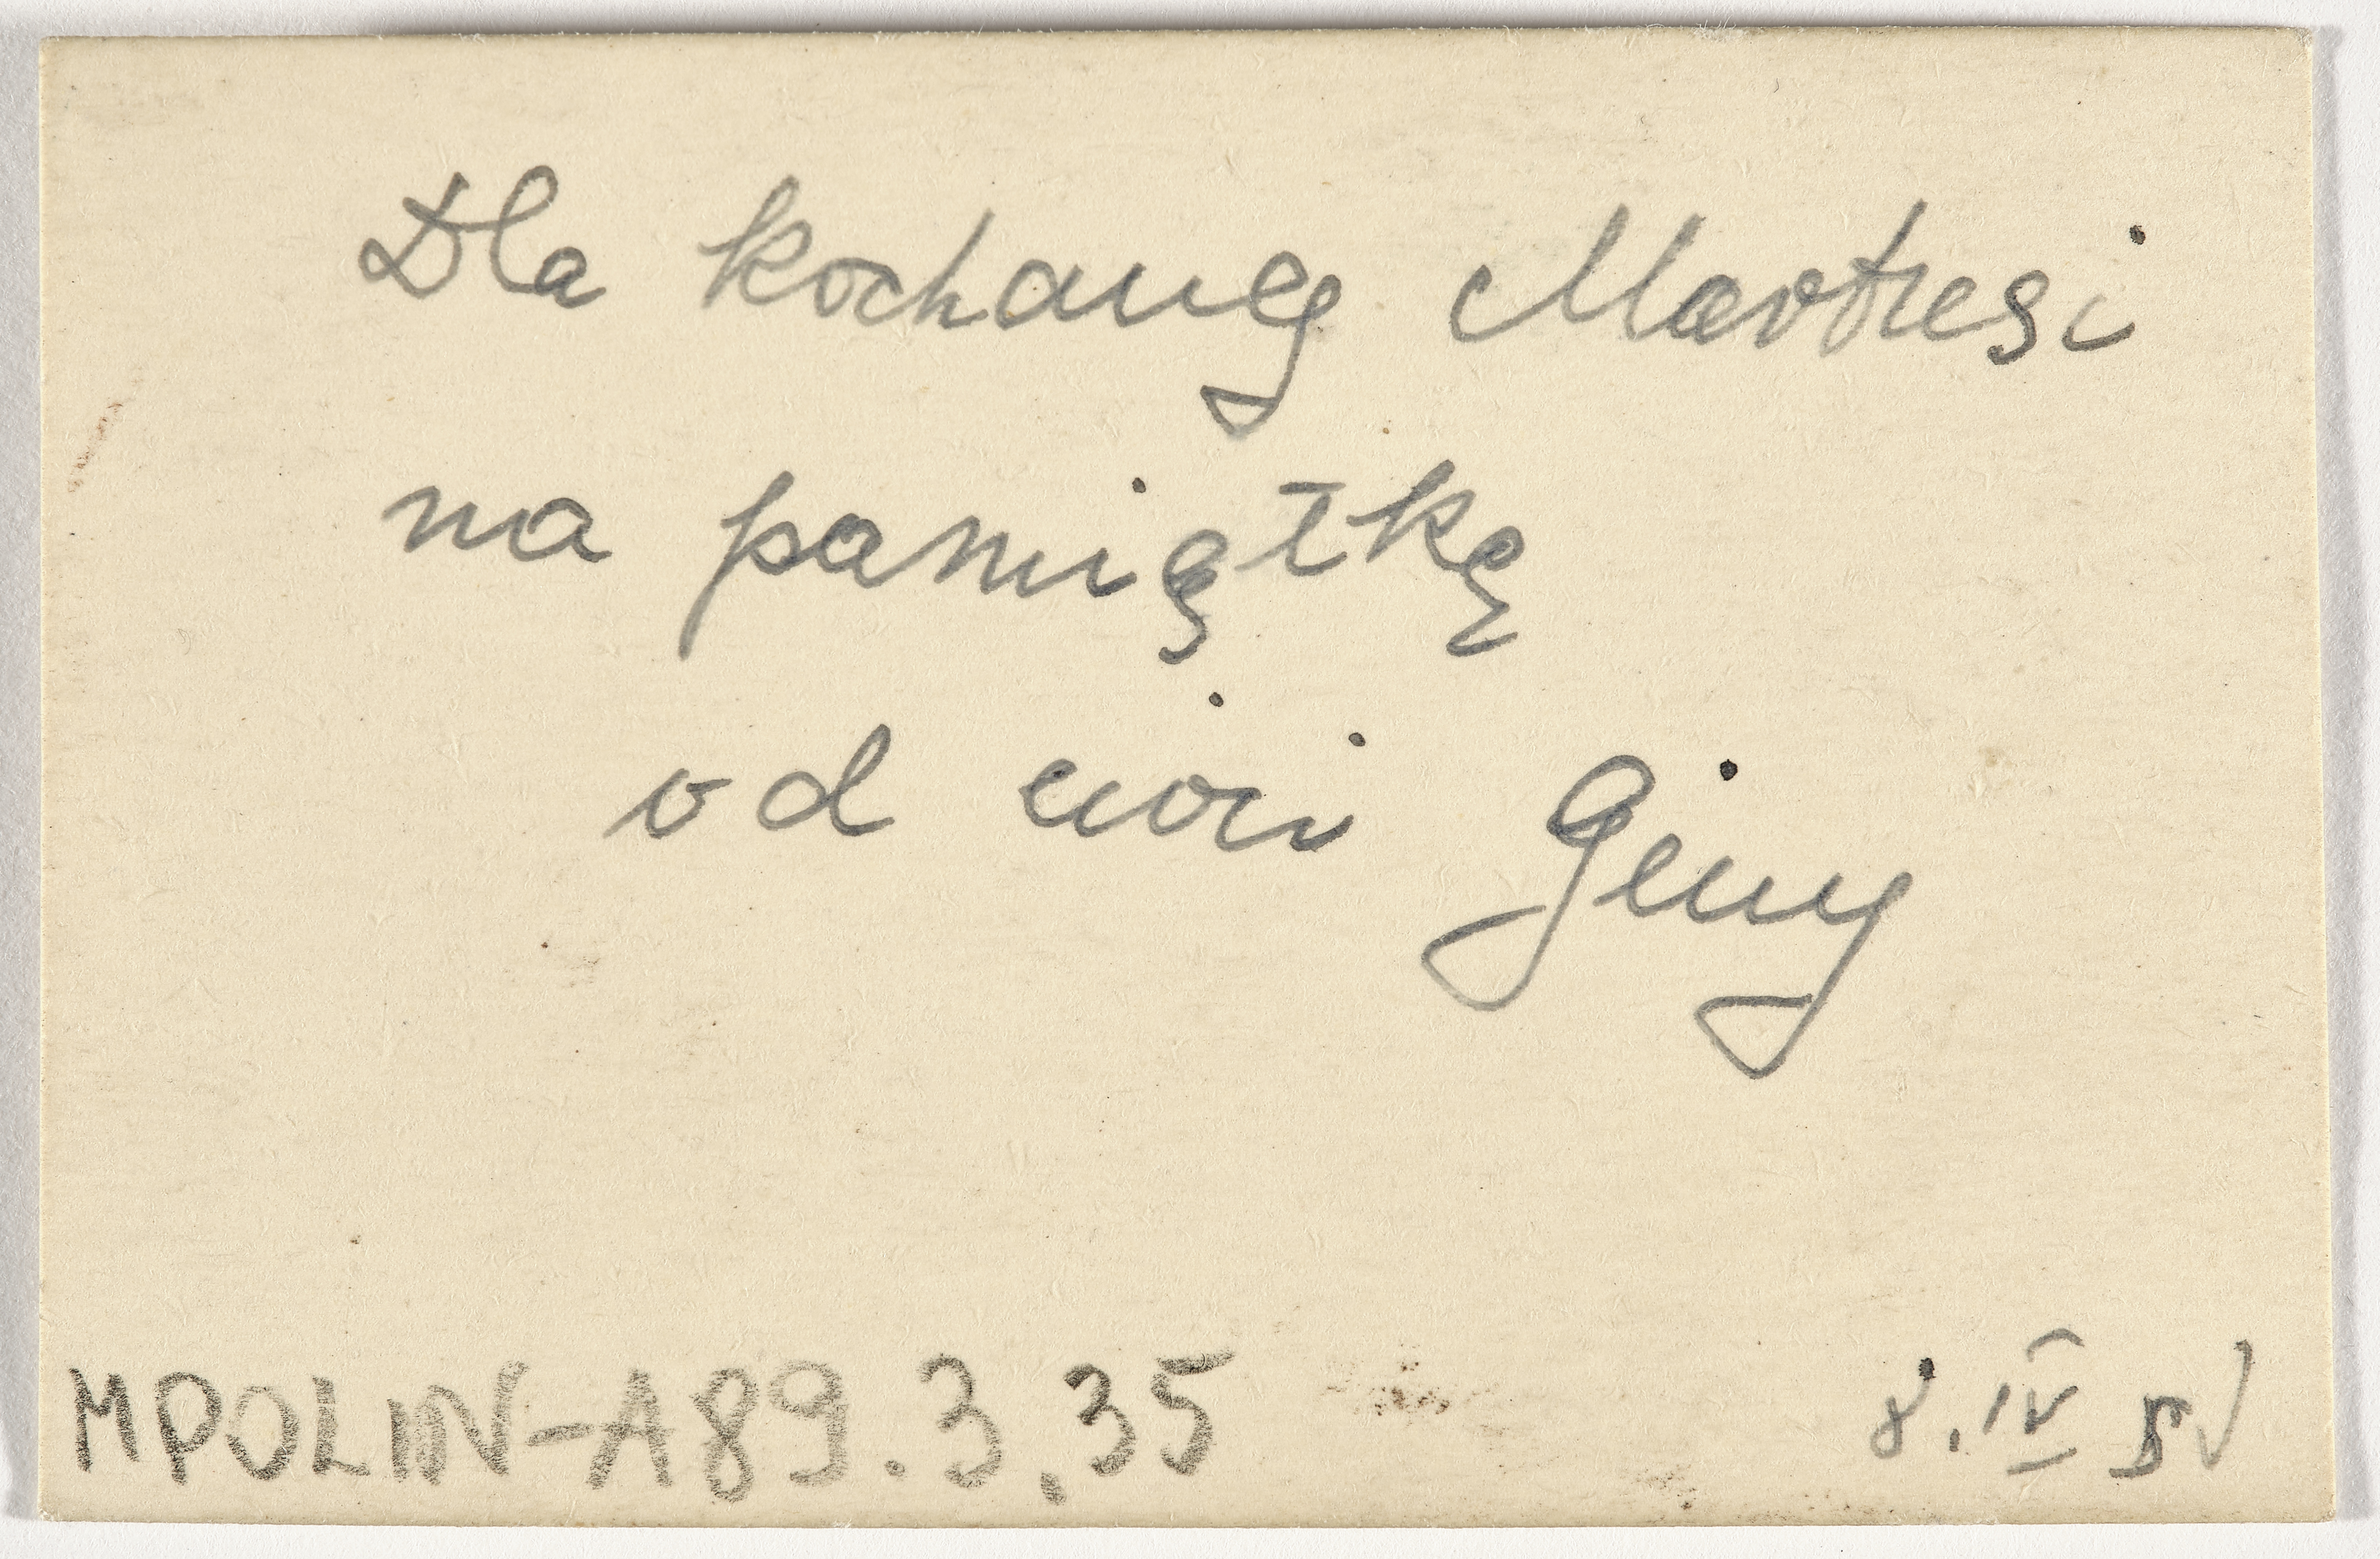 Dla kochanej Martusi
na pamiątkę
od cioci Geni
MPOLIN-A89.3.35
8.IV